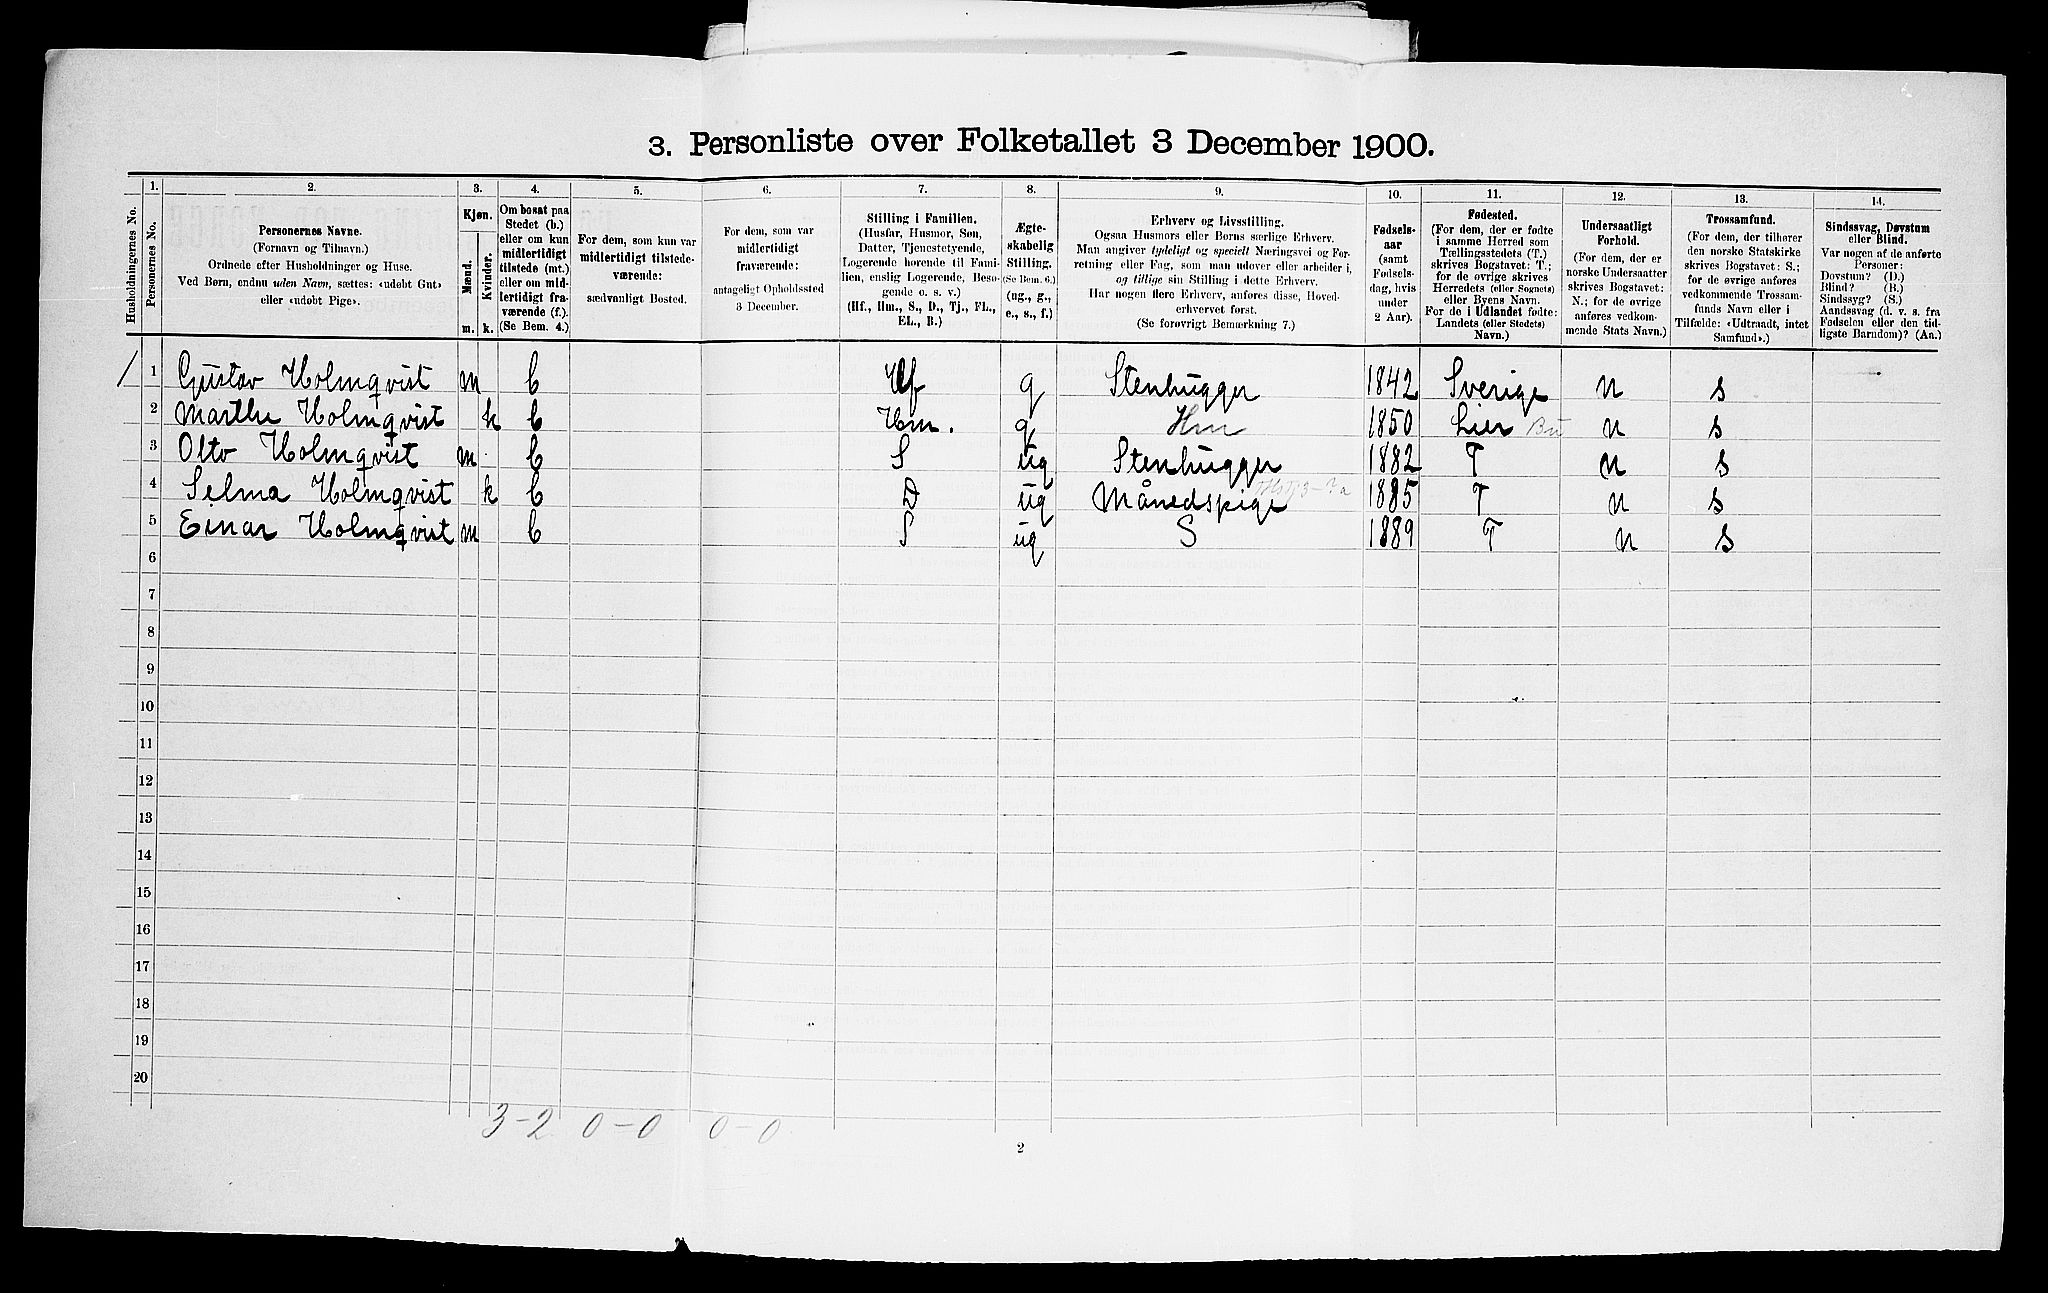 3. Personliste over Folketallet 3 December 1900.
Husholdningernes No.
1.
Personernes No.
2.
Personernes Navne.
(Fornavn og Tilnavn.)
Ordnede efter Husholdninger og Huse.
Ved Børn, endnu uden Navn, sættes: «udøbt Gut»
eller «udøbt Pige».
3.
Kjøn.
Mænd.
Kvinder.
m.
k.
4.
Om bosat paa
Stedet (b.)
eller om kun
midlertidigt
tilstede (mt.)
eller om mid-
lertidigt fra-
værende (f.).
(Se Bem. 4.)
5.
For dem, som kun var
midlertidigt tilstede-
værende:
sædvanligt Bosted.
6.
For dem, som var
midlertidigt
fraværende:
antageligt Opholdssted
3 December.
7.
Stilling i Familien.
(Husfar, Husmor, Søn,
Datter, Tjenestetyende,
Logerende hørende til Fami-
lien, enslig Logerende, Besø-
gende o. s. v.)
(Hf., Hm., S., D., Tj., FL.,
EL., B.)
8.
Ægte-
skabelig
Stilling.
(Se Bem. 6.)
(ug., g.,
e., s., f.)
9.
Erhverv og Livsstilling.
Ogsaa Husmors eller Børns særlige Erhverv.
Man angiver tydeligt og specielt Næringsvei og For-
retning eller Fag, som man udøver eller arbeider i,
og tillige sin Stilling i dette Erhverv.
Har nogen flere Erhverv, anføres disse, Hoved-
erhvervet først.
(Se forøvrigt Bemærkning 7.)
10.
Fødsels-
aar
(samt
Fødsels-
dag, hvis
under
2 Aar).
11.
Fødested.
(For dem, der er fødte
i samme Herred som
Tællingsstedets (T.)
skrives Bogstavet: T.;
for de øvrige skrives
Herredets (eller Sognets)
eller Byens Navn.
For de i Udlandet fødte:
Landets (eller Stedets)
Navn.)
12.
Undersaatligt
Forhold.
(For dem, der er
norske Undersaatter
skrives Bogstavet:
N.; for de øvrige
anføres vedkom-
mende Stats Navn.)
13.
Trossamfund.
(For dem, der tilhører
den norske Statskirke
skrives Bogstavet: S.;
for de øvrige anføres
vedkommende Trossam-
funds Navn eller i
Tilfælde: «Udtraadt, intet
Samfund».)
14.
Sindssvag, Døvstum
eller Blind.
Var nogen af de anførte
Personer:
Døvstum? (D.)
Blind? (B.)
Sindssyg? (S.)
Aandssvag (d. v. s. fra
Fødselen eller den tid-
ligste Barndom)? (Aa.)
1 Gustav Holmqvist m b Hf g Stenhugger 1842 Sverige N S
2 Marthe Holmqvist k b Hm. g Hm 1850 Lier Bu N S
3 Otto Holmqvist m b S ug Stenhugger 1882 T N S
4 Selma Holmqvist k b D ug Månedspige 1885 T N S
5 Einar Holmqvist m b S ug S 1889 T N S
6
7
8
9
10
11
12
13
14
15
16
17
18
19
20
3-2 0-0 0-0
2